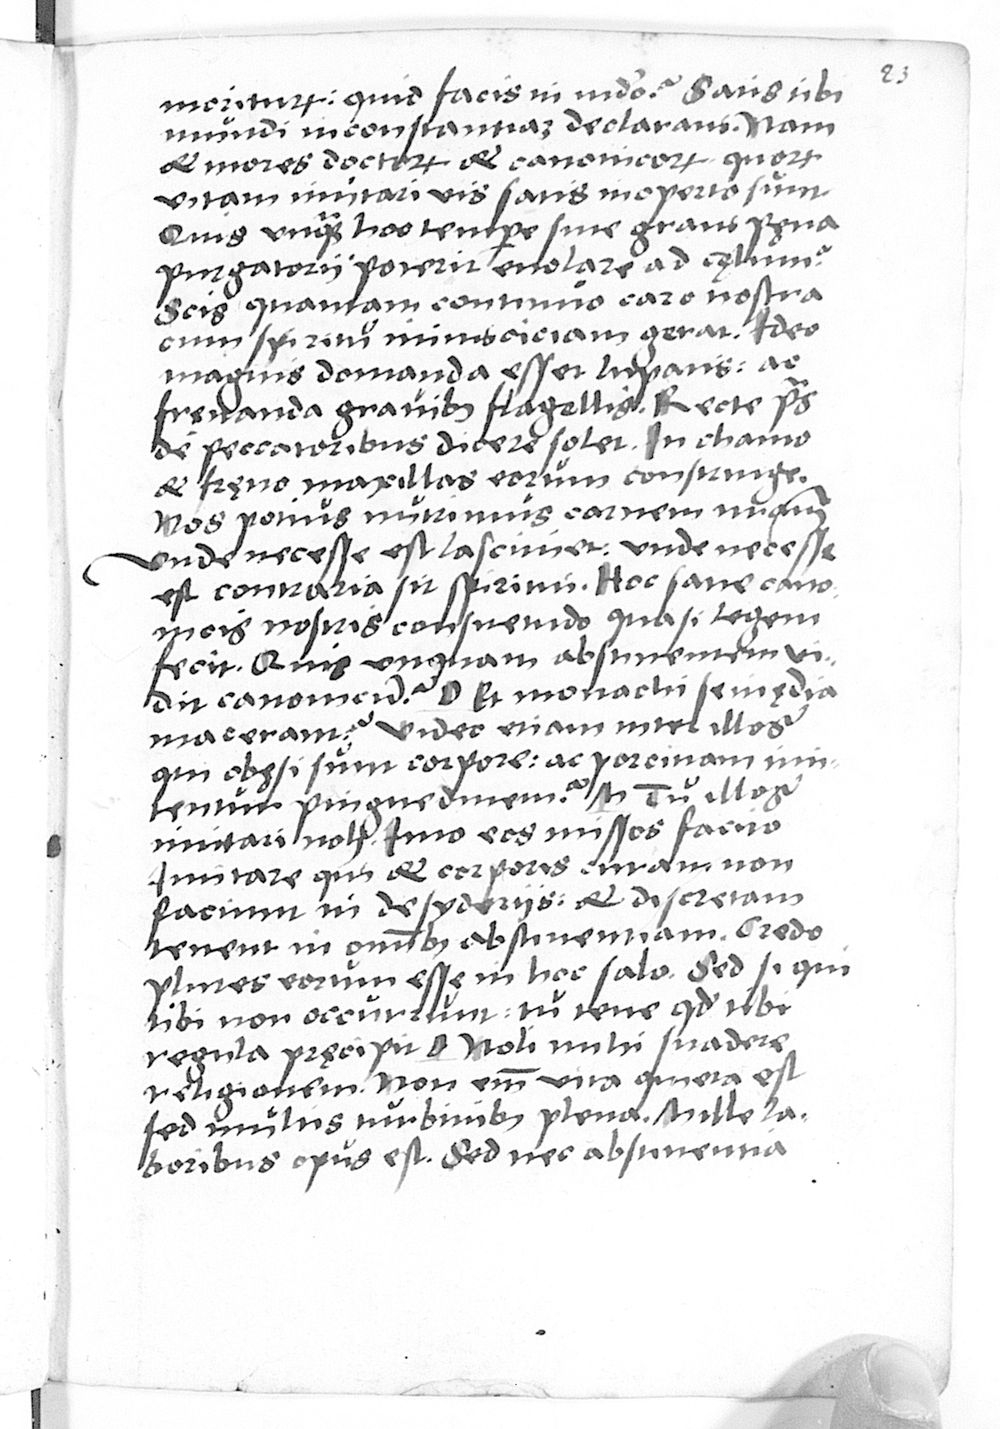 23
moritur: quid facis in mdo? Satis tibi
mundi inconstantiaz declaraui. Nam
& mores doctorꝝ & canonicorꝝ quorꝝ
vitam imitari vis satis in aperto sunt
Quis vnqꝫ hoc tempore sine graui pęna
purgatorij poterit euolare ad cęlum?
Scis quantam continuo caro nostra
cum spiritu inimiciciam gerat. Ideo
magnis domanda esset lupatis: ac
frenanda grauibꝰ flagellis. Recte ꝓs
de peccatoribus dicere solet. In chamo
& fręno maxillas eorum constringe.
Nos potius nutrimus carnem nimiū
vnde necesse est lasciuiet: vnde necesse
est contraria sit spiritui. Hoc sane cano-
nicis nostris consuetudo quasi legem
fecit. Quis vnquam abstinentem vi-
dit canonicū? D Et monachi se inędia
macerant? Video etiam inter illos
qui obęsi sunt corpore: ac porcinam ini-
tentur pinguedinem? N Tu illos
imitari noli. Imo eos missos facito
Imitare qui & corporis curam non
faciunt in desyderijs: & discretam
tenent in omībꝰ abstinentiam. Credo
plures eorum esse in hoc salo. Sed si qui
tibi non occurrunt: tu tene qd tibi
regula pręcipit D Noli mihi suadere
religionem. Non em̄ vita quieta est
sed multis turbinibꝰ plena. Mille la-
boribus opus est. Sed nec abstinentia